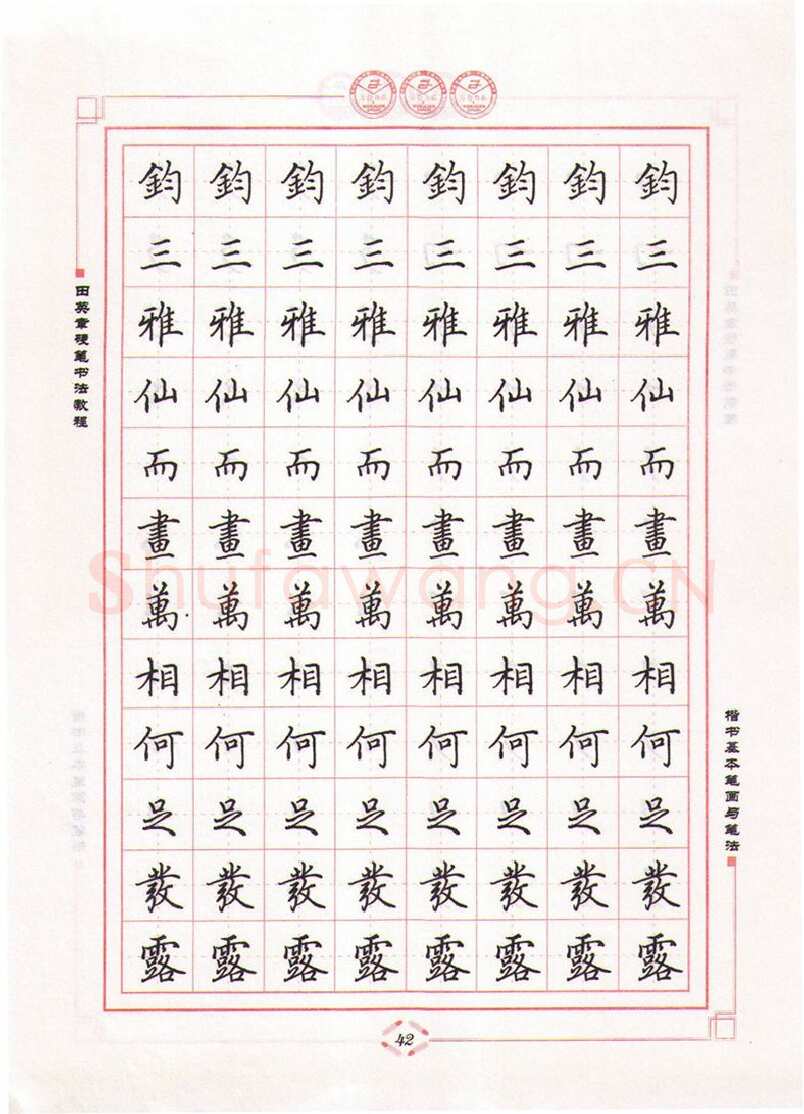 田英章硬笔书法教程
鈞鈞鈞鈞鈞鈞鈞鈞
三三三三三三三三
雅雅雅雅雅雅雅雅
仙仙仙仙仙仙仙仙
而而而而而而而而
畫畫畫畫畫畫畫畫
萬萬萬萬萬萬萬萬
相相相相相相相相
何何何何何何何何
足足足足足足足足
發發發發發發發發
露露露露露露露露
楷书基本笔画与笔法
Shufawang.CN
42